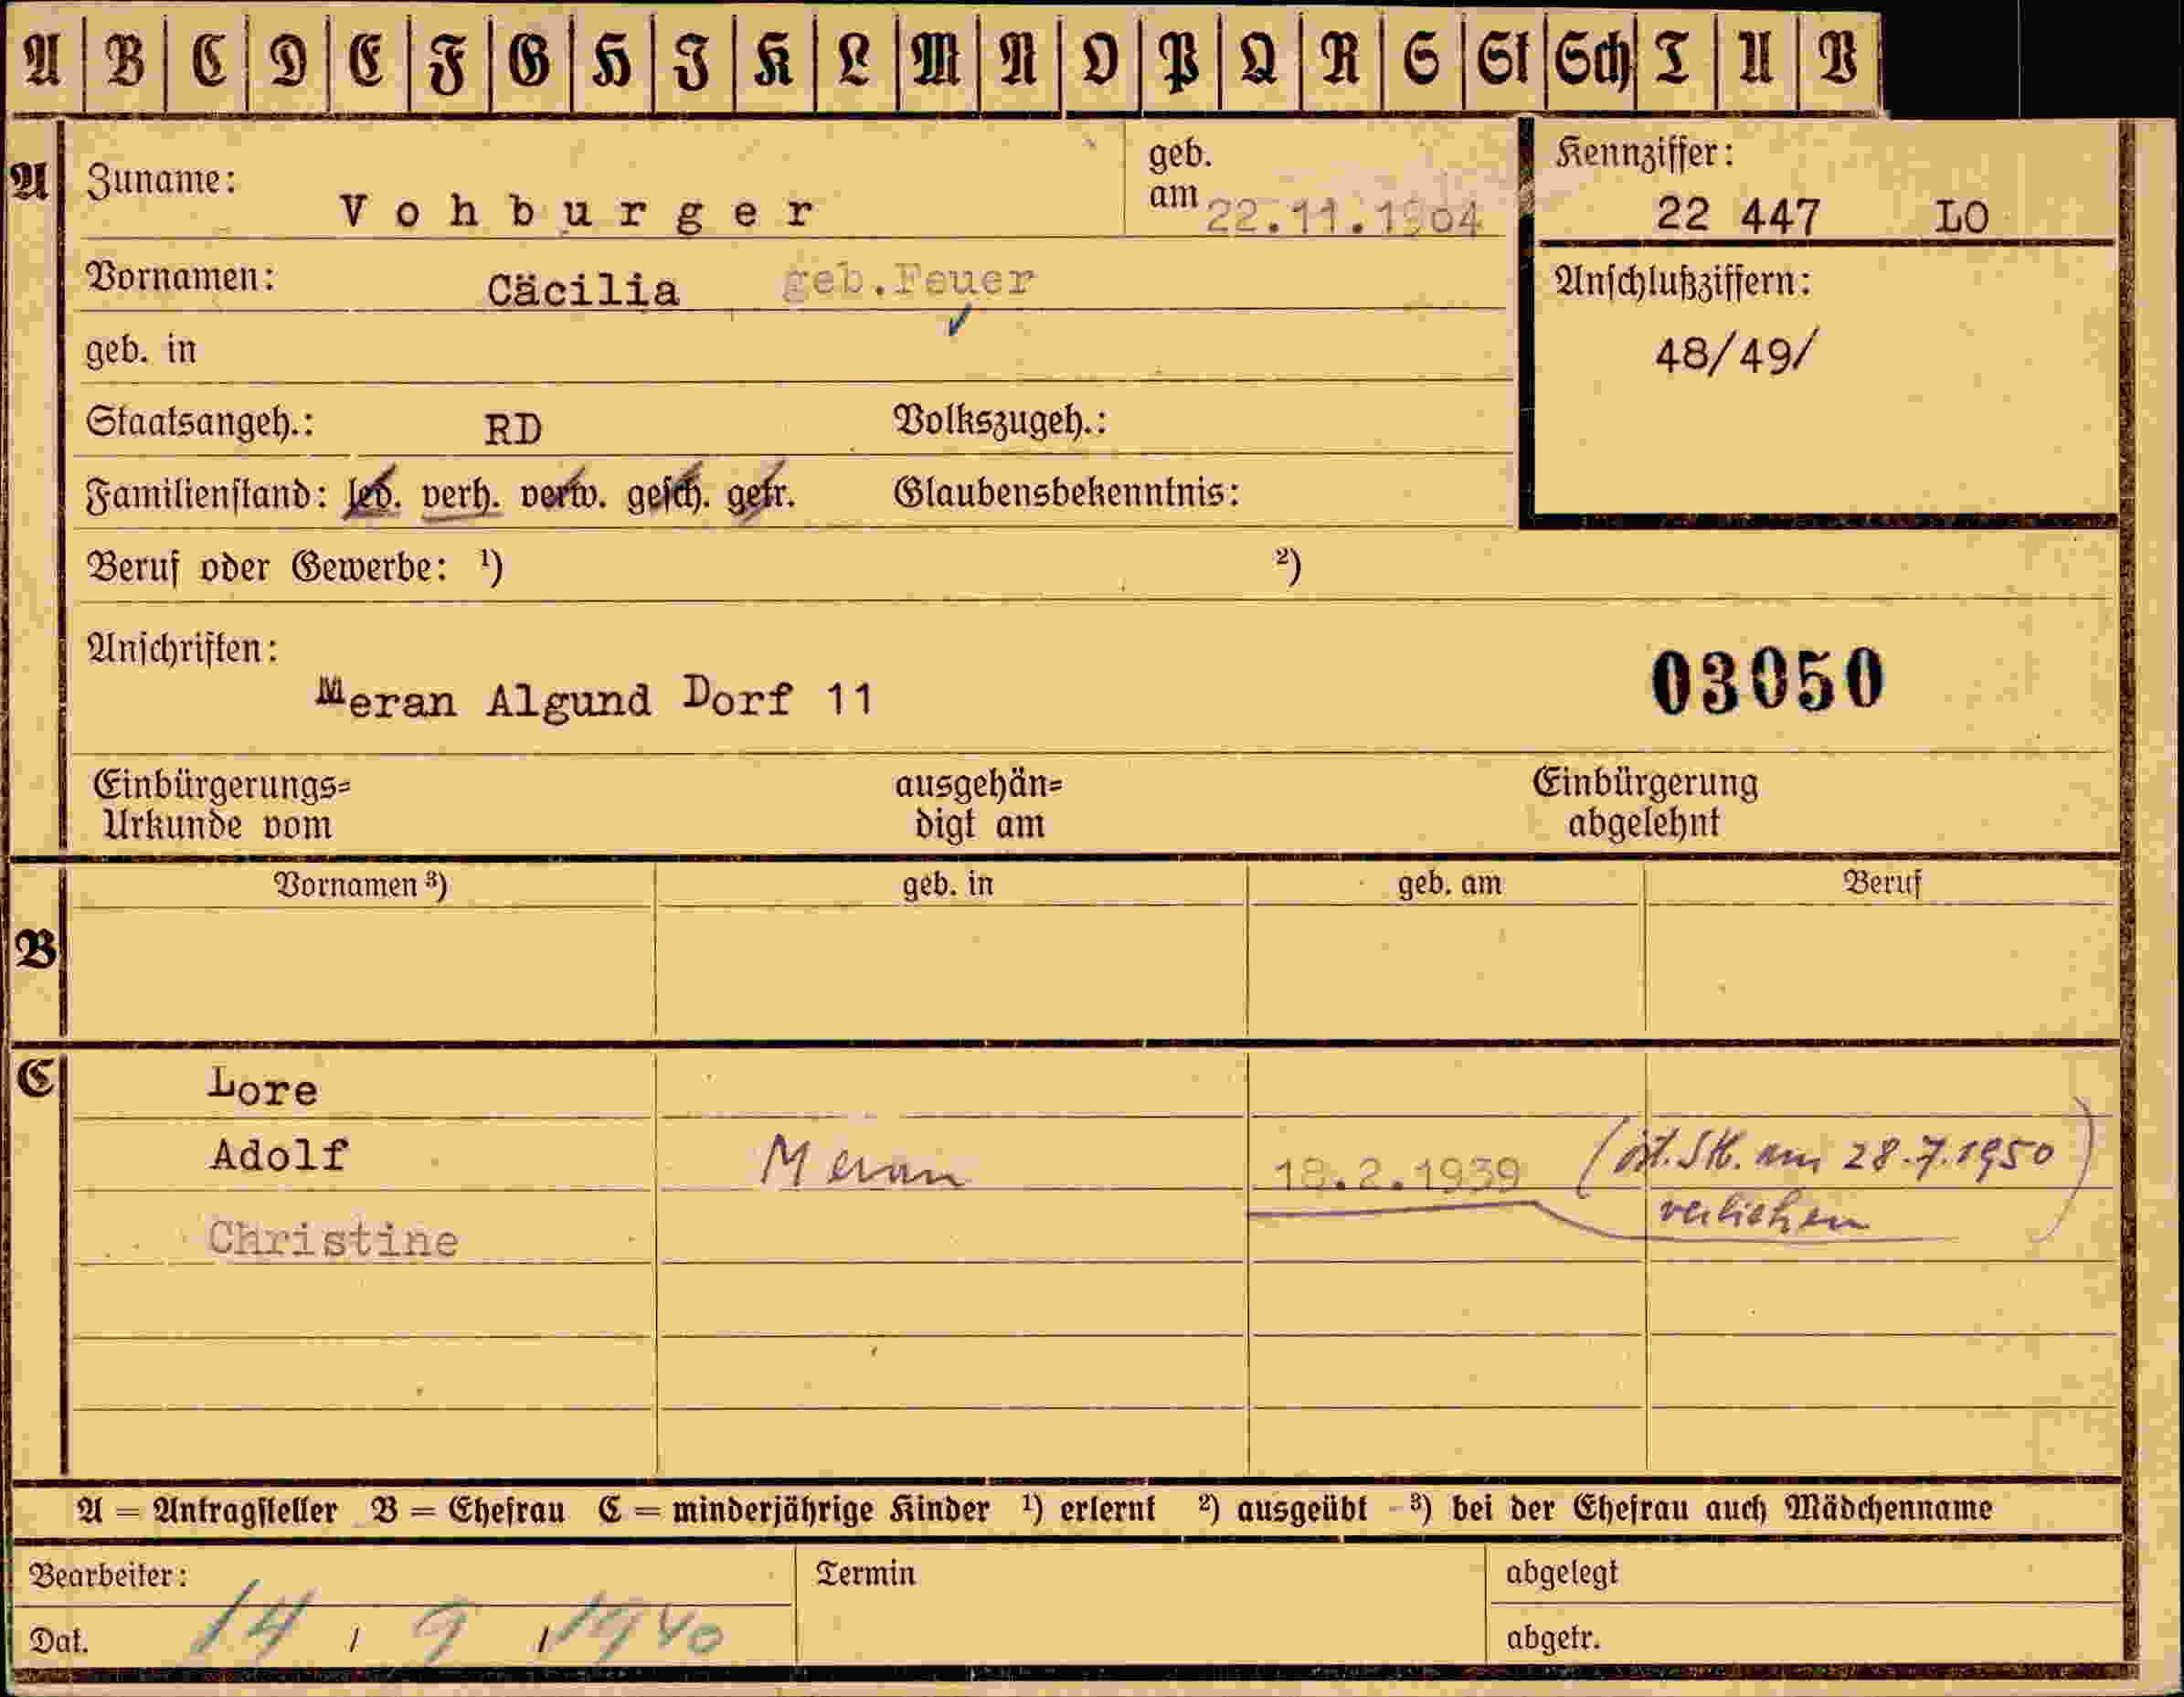 A B C D E F G H J K L M N O P Q R S St Sch T U V
A Zuname: Vohburger geb. am 22.11.1904 Kennziffer: 22 447 LO
Vornamen: Cäcilia geb.Feuer Anschlußziffern:
geb. in 48/49/
Staatsangeh.: RD Volkszugeh.:
Familienstand: led. verh. verw. gesch. getr. Glaubensbekenntnis:
Beruf oder Gewerbe: ¹) ²)
Anschriften:
Meran Algund Dorf 11 03050
Einbürgerungs= ausgehän= Einbürgerung
Urkunde vom digt am abgelehnt
Vornamen ³) geb. in geb. am Beruf
B
C Lore
Adolf Meran 18.2.1939 (öst. Stb. am 28.7.1950
verliehen)
Christine
A = Antragsteller B = Ehefrau C = minderjährige Kinder ¹) erlernt ²) ausgeübt ³) bei der Ehefrau auch Mädchenname
Bearbeiter: Termin abgelegt
Dat. 14 / 9 / 1940 abgetr.